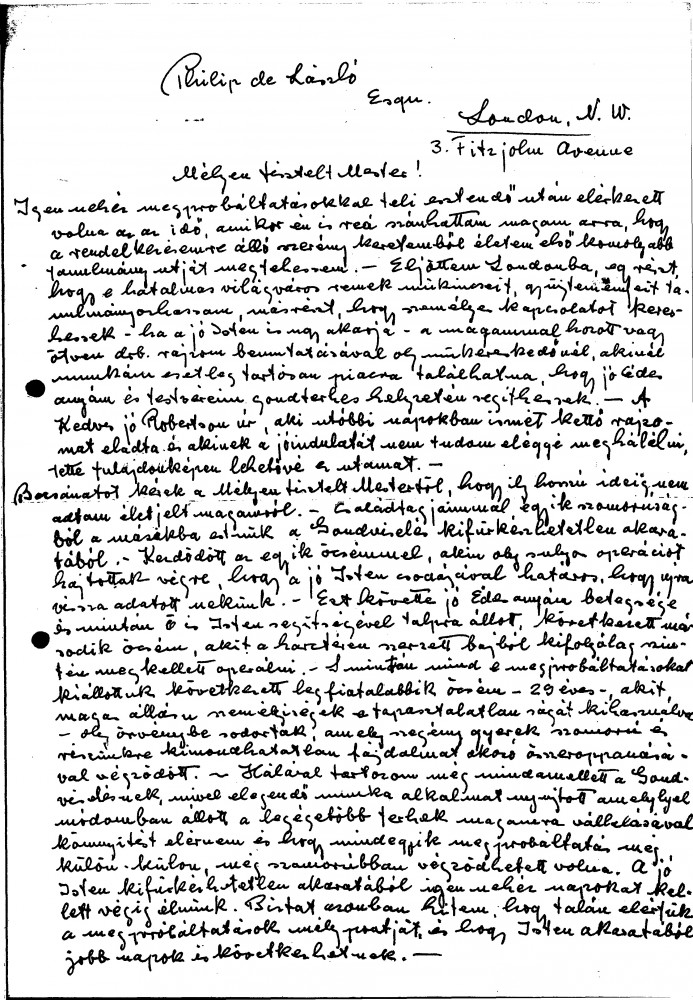 Philip de László
Esqu.
London, N. W.
3. Fitzjohn Avenue
Mélyen tisztelt Mester!
Igen nehéz megpróbáltatásokkal teli esztendő után elérkezett
volna az az idő, amikor én is reá szánhattam magam arra, hogy
a rendelkezésemre álló szerény keretemből életem első komolyabb
tanulmány utját megtehessem. — Eljöttem Londonba, egyrészt,
hogy e hatalmas világváros remek műkincseit, gyűjteményeit ta-
nulmányozhassam, másrészt, hogy személyes kapcsolatot keres-
hessek - ha a jó Isten is ugy akarja - a magammal hozott vagy
ötven drb. rajzom bemutatásával oly műkereskedőnél, akinél
munkám esetleg tartósan piacra találhatna, hogy jó Édes
anyám és testvéreim gondterhes helyzetén segíthessek. — A
Kedves jó Robertson úr, aki utóbbi napokban ismét kettő rajzo-
mat eladta és akinek a jóindulatát nem tudom eléggé meghálálni,
tette tulajdonképen lehetővé ez utamat. —
Bocsánatot kérek a Mélyen tisztelt Mestertől, hogy ily hosszú ideig nem
adtam életjelt magamról. — Családtagjaimmal egyik szomorúság-
ból a másikba estünk a Gondviselés kifürkészhetetlen akara-
tából. - Kezdődött az egyik öcsémmel, akin oly sulyos operációt
hajtottak végre, hogy a jó Isten csodájával határos, hogy ujra
vissza adatott nekünk. - Ezt követte jó Édes anyám betegsége
és miután Ő is Isten segítségével talpra állott, következett má-
sodik öcsém, akit a harctéren szerzett bajból kifolyólag szin-
tén meg kellett operálni. - S miután mind e megpróbáltatásokat
kiállottuk következett legfiatalabbik öcsém - 29 éves -, akit,
magas állásu személyiségek e tapasztalatlanságát kihasználva
- oly örvénybe sodortak, amely szegény gyerek szomorú és
részünkre kimondhatatlan fájdalmat okozó összeroppanásá-
val végződött. ~ Hálával tartozom még mindamellett a Gond-
viselésnek, mivel elegendő munka alkalmat nyujtott amelylyel
módomban állott a legégetőbb terhek magamra vállalásával
könnyítést elérnem és hogy mindegyik megpróbáltatás meg
külön-külön, még szomorúbban végződhetett volna. A jó
Isten kifürkészhetetlen akaratából igen nehéz napokat kel-
lett végig élnünk. Biztat azonban hitem, hogy talán elértük
a megpróbáltatások mélypontját, és hogy Isten akaratából
jobb napok is következhetnek. —